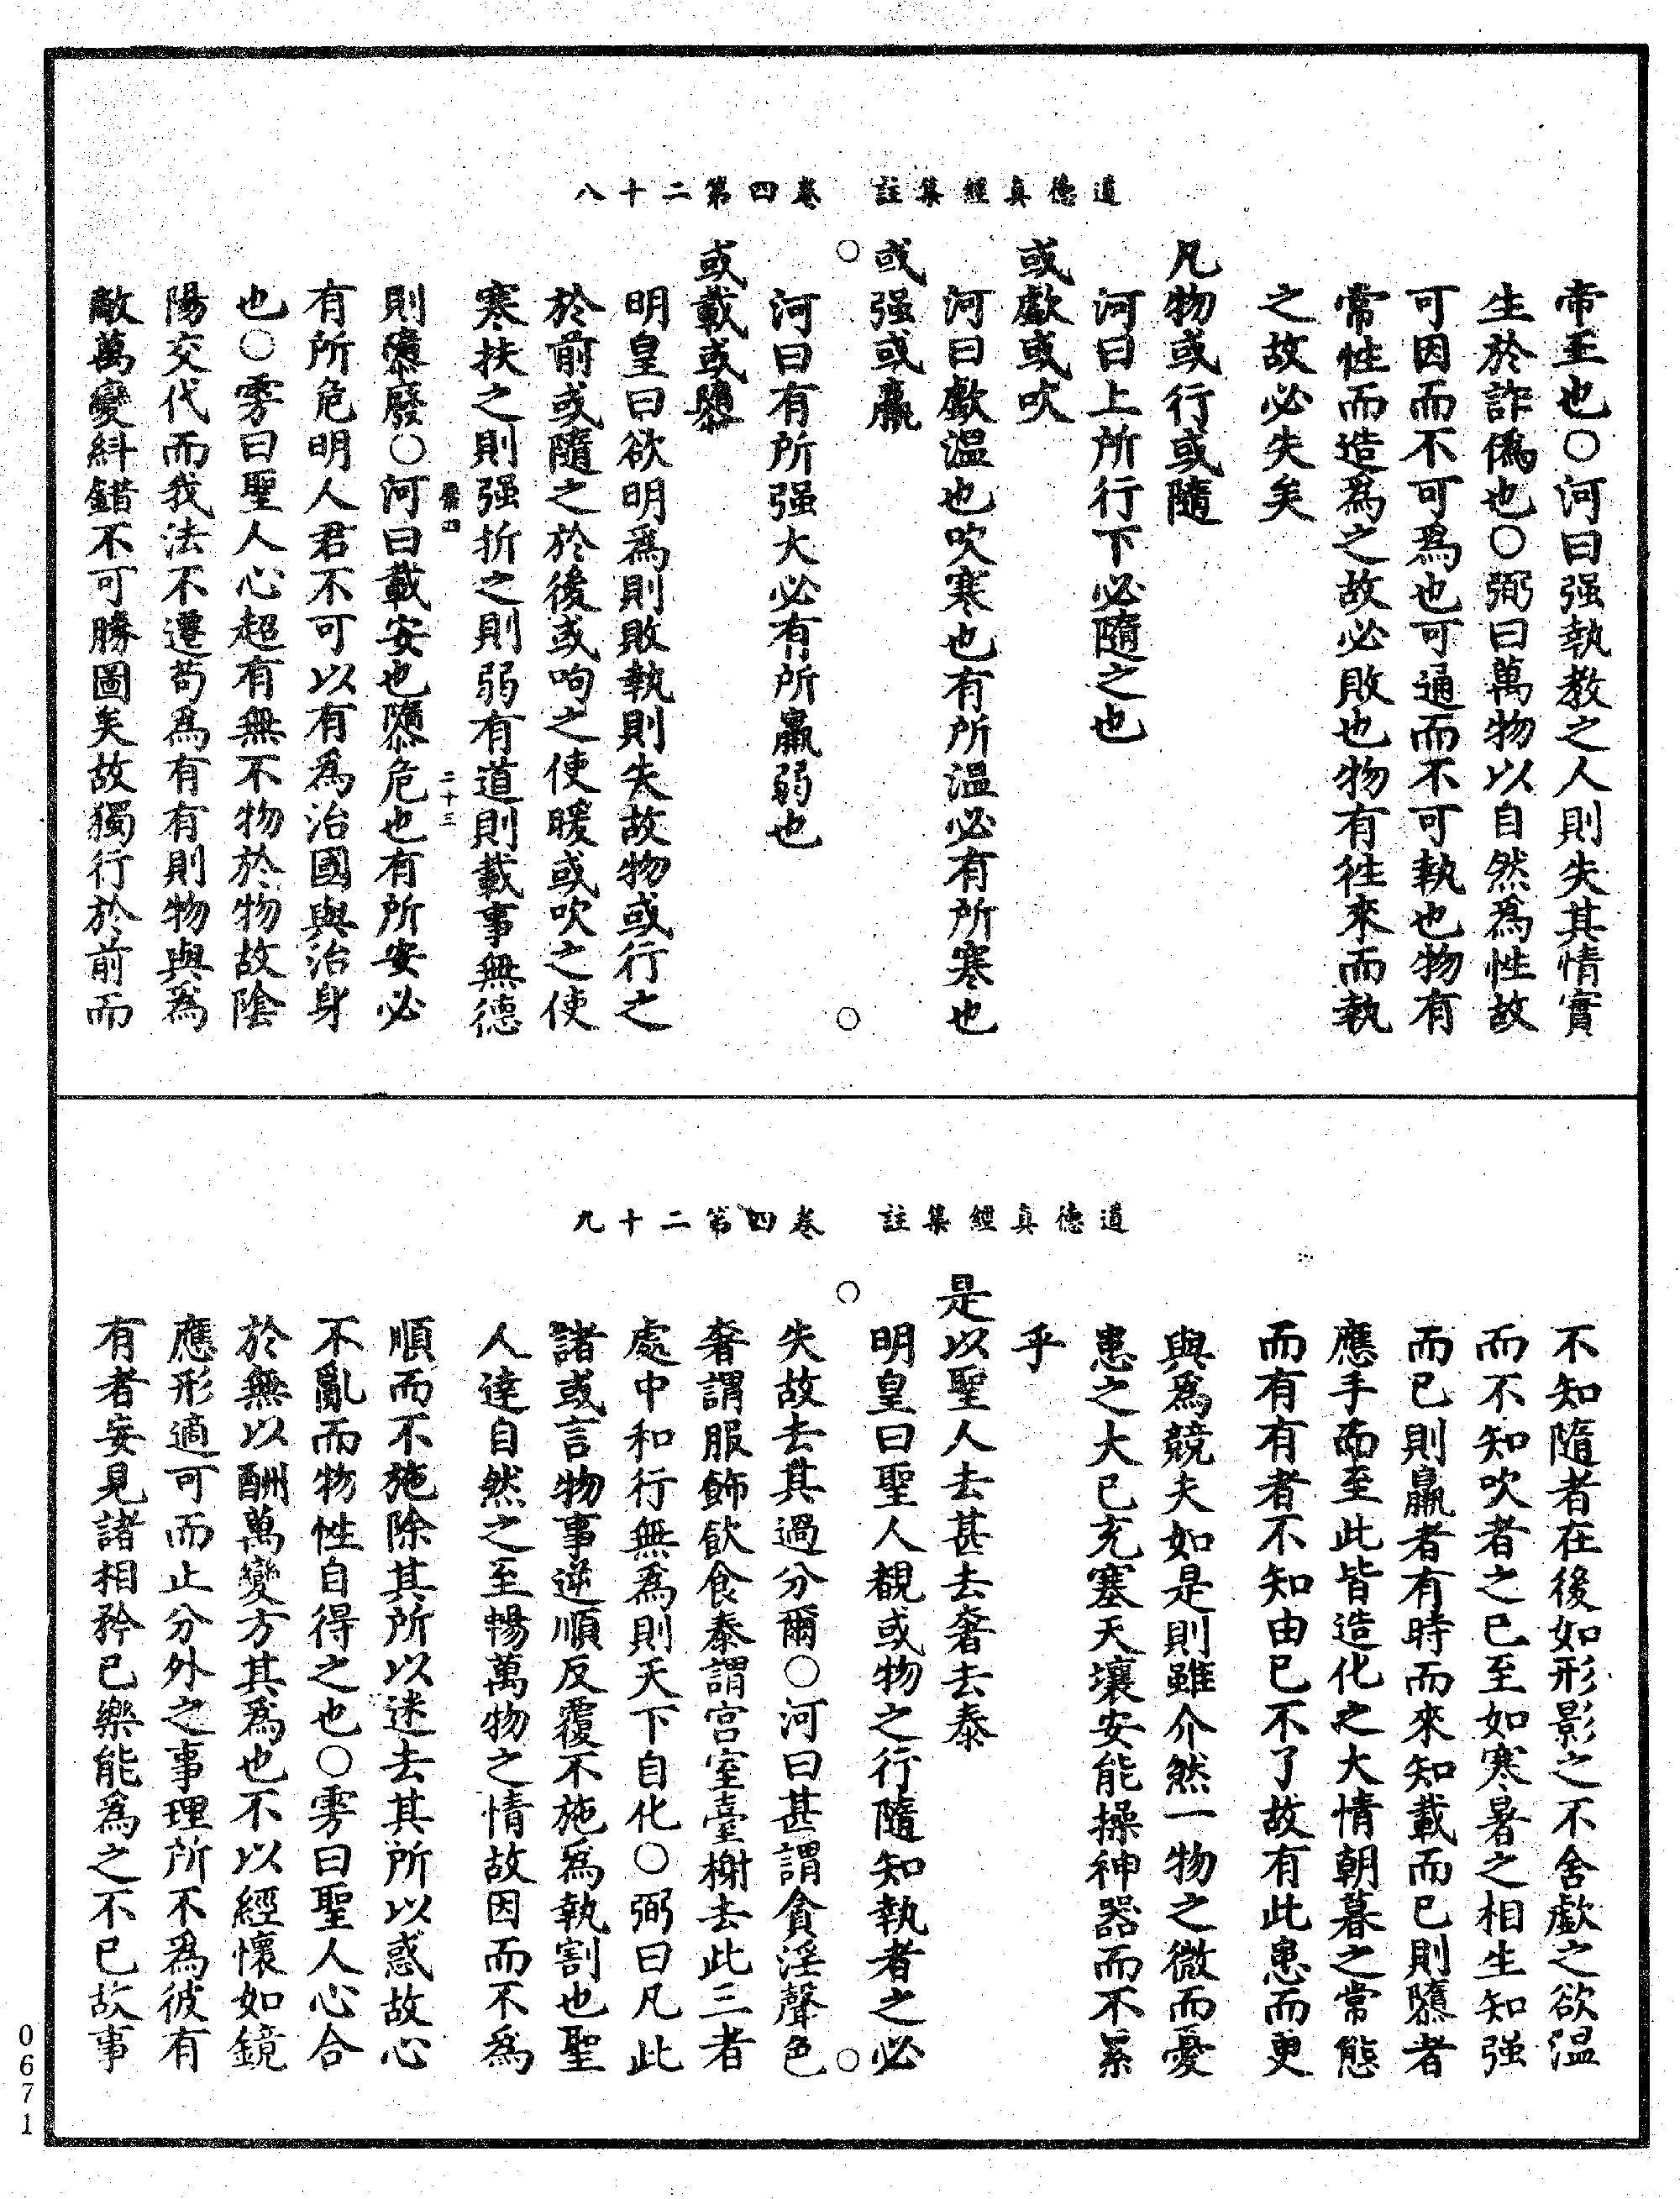 道德真經集註 卷四第二十八
帝王也○河曰强執教之人則失其情實
生於詐僞也○弼曰萬物以自然爲性故
可因而不可爲也可通而不可執也物有
常性而造爲之故必敗也物有徃來而執
之故必失矣
凡物或行或隨
河曰上所行下必隨之也
或歔或吹
河曰歔温也吹寒也有所温必有所寒也
或强或羸
河曰有所强大必有所羸弱也
或載或隳
明皇曰欲明爲則敗執則失故物或行之
於前或隨之於後或呴之使暖或吹之使
寒扶之則强折之則弱有道則載事無德
二十三
則隳廢○河曰載安也隳危也有所安必
有所危明人君不可以有爲治國與治身
也○雱曰聖人心超有無不物於物故陰
陽交代而我法不遷苟爲有有則物與爲
敵萬變糾錯不可勝圖矣故獨行於前而
道德真經集註 卷四第二十九
不知隨者在後如形影之不舍歔之欲温
而不知吹者之已至如寒暑之相生知强
而已則羸者有時而來知載而已則隳者
應手而至此皆造化之大情朝暮之常態
而有有者不知由已不了故有此患而更
與爲競夫如是則雖介然一物之微而憂
患之大已充塞天壤安能操神器而不累
乎
是以聖人去甚去奢去泰
明皇曰聖人覩或物之行隨知執者之必
失故去其過分爾○河曰甚謂貪淫聲色
奢謂服飾飲食泰謂宫室臺榭去此三者
處中和行無爲則天下自化○弼曰凡此
諸或言物事逆順反覆不施爲執割也聖
人達自然之至暢萬物之情故因而不爲
順而不施除其所以迷去其所以惑故心
不亂而物性自得之也○雱曰聖人心合
於無以酬萬變方其爲也不以經懷如鏡
應形適可而止分外之事理所不爲彼有
有者妄見諸相矜已樂能爲之不已故事
0671